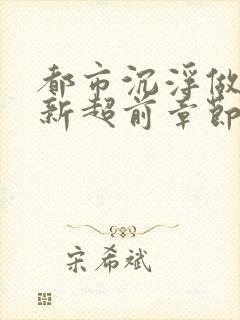 都市沉浮做
新超前章节
宋希斌